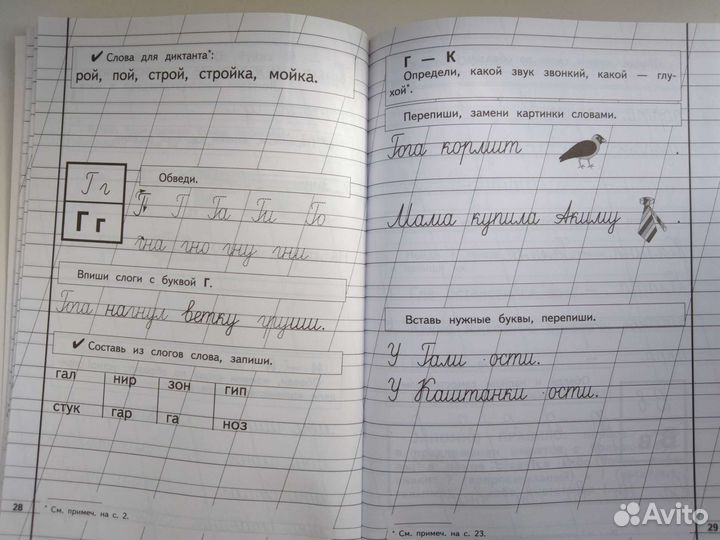 ✔ Слова для диктанта*:
рой, пой, строй, стройка, мойка.
Г г
Г г
Обведи.
Г Г Га Ги Го
гна гно гну гни
Впиши слоги с буквой Г.
Гога нагнул ветку груши.
✔ Составь из слогов слова, запиши.
гал нир зон гип
стук гар га ноз
28
* См. примеч. на с. 2.
Г — К
Определи, какой звук звонкий, какой — глу-
хой*.
Перепиши, замени картинки словами.
Гога кормит .
Мама купила Акиму .
Вставь нужные буквы, перепиши.
У Гали ·ости.
У Каштанки ·ости.
* См. примеч. на с. 23.
29
Avito